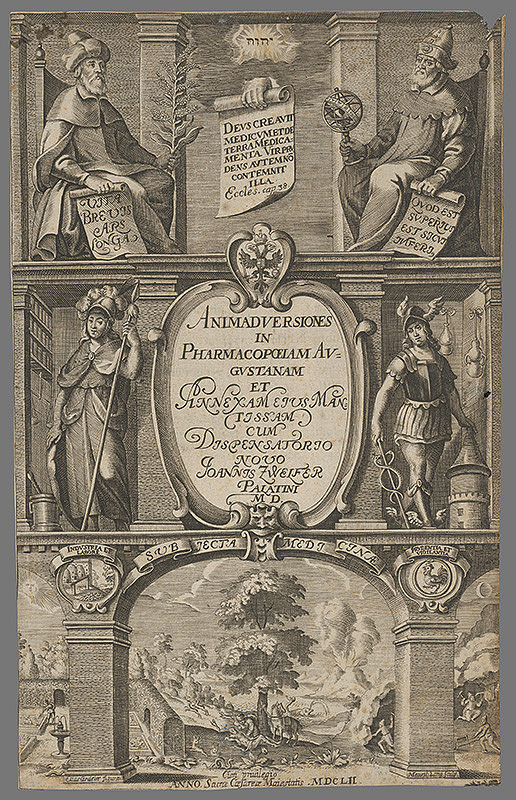 יהוה
DEVS CREAVIT
MEDICVM ET DE
TERRA MEDICA-
MENTA VIR PRV
DENS AVTEM NŌ
CONTEMNIT
ILLA.
Eccles. cap. 38.
VITA
BREVIS
ARS
LONGA
QVOD EST
SVPERIVS
EST SICVT
INFERI9
ANIMADVERSIONES
IN
PHARMACOPŒIAM AV-
GVSTANAM
ET
ANNEXAM EIUS MAN
TISSAM
CUM
DISPENSATORIO
NOVO
IOANNIS ZWELFER
PALATINI
M D
INDVSTRIA ET
SUBJECTA MEDICINÆ
Cum privilegio
ANNO Sacræ Cæsareæ Maiestatis .MDCLII